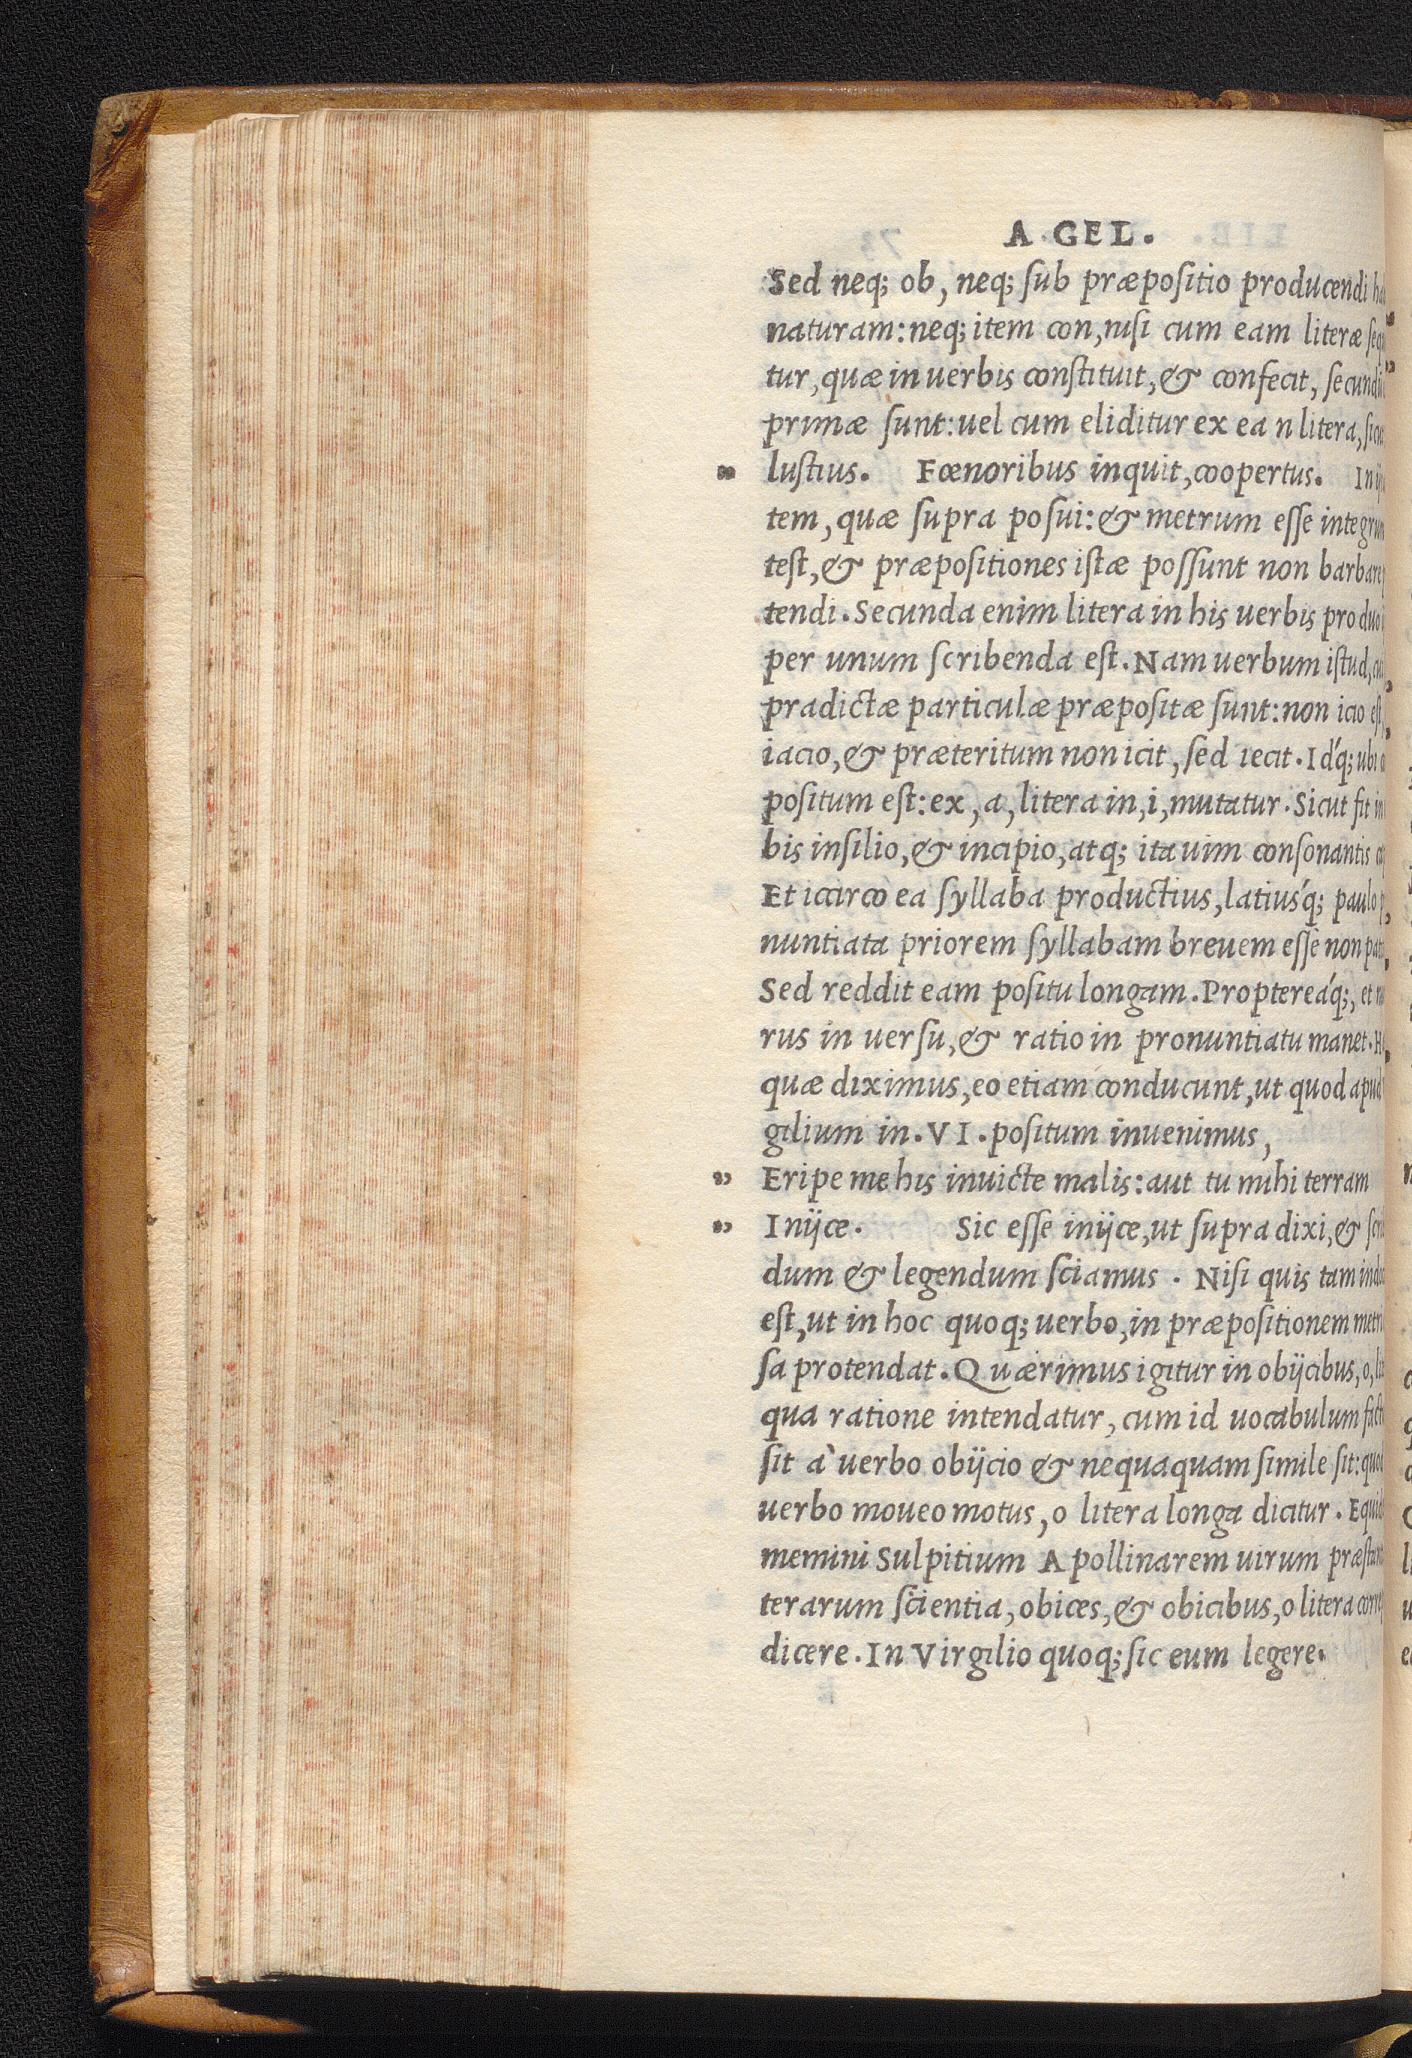 A. GEL.
Sed neq; ob, neq; sub præpositio producendi
naturam: neq; item con, nisi cum eam literæ
tur, quæ in uerbis constituit, & confecit,
primæ sunt: uel cum eliditur ex ea n litera,
„ lustius. Fœnoribus inquit, coopertus.
tem, quæ supra posui: & metrum esse
test, & præpositiones istæ possunt non
tendi. Secunda enim litera in his uerbis pro duo
per unum scribenda est. Nam uerbum istud,
prædictæ particulæ præpositæ sunt: non icio est
iacio, & præteritum non icit, sed iecit. Id'q; ubi
positum est: ex, a, litera in, i, mutatur. Sicut fit in
bis insilio, & incipio, atq; ita uim consonantis
Et idcirco ea syllaba productius, latius'q; paulo
nuntiata priorem syllabam breuem esse non
Sed reddit eam positu longam. Proptereá'q;, et
rus in uersu, & ratio in pronuntiatu manet.
quæ diximus, eo etiam conducunt, ut quod apud
gilium in. VI. positum inuenimus,
„ Eripe me his inuicte malis: aut tu mihi terram
„ Iniïce. Sic esse iniïce, ut supra dixi, &
dum & legendum sciamus. Nisi quis tam
est, ut in hoc quoq; uerbo, in præpositionem
sa protendat. Quærimus igitur in obiïcibus, o,
qua ratione intendatur, cum id uocabulum
sit à uerbo obiïcio & nequaquam simile sit:
uerbo moueo motus, o litera longa dicitur.
memini Sulpitium Apollinarem uirum
terarum scientia, obices, & obicibus, o litera
dicere. In Virgilio quoq; sic eum legere.